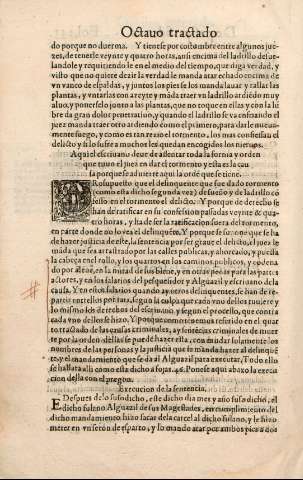 Octauo tractado
do porque no duerma. Y tienese por costumbre entre algunos jue-
zes, de tenerle veynte y quatro horas, ansi encima del ladrillo desue-
landole y requiriendo le en el medio del tiempo, que diga verdad, y
visto que no quiere dezir la verdad le manda atar echado encima de
vn vanco de espaldas, y juntos los pies se los manda lauar y rallar las
plantas, y vntarlas con azeyte y māda traer vn ladrillo ardiēdo muy
al uiuo, y ponerselo junto a las plantas, que no toque en ellas y con la lū
bre da gran dolor y penetrando, y quando el ladrillo se va enfriando el
juez manda traer otro ardiendo como el primero, para darle nueua-
mente fuego, y como es tan rezio el tormento, los mas confiessan el
delicto y si lo sufre a muchos les quedan encogidos los nieruos.
Aqui el escriuano deue de assentar toda la forma y orden
que tuuo el juez en dar el tormento y esta es la cau
sa porque se aduierte aqui la ordē que se tiene.
Presupuesto que el delinquente que fue dado tormento
(como esta dicho segunda vez) de sueño y de ladrillo cō
fiesso en el tormento el delicto. Y porque de derecho se
han de ratificar en su confession passadas veynte & qua
tro horas, y ha de ser la ratificacion fuera del tormento,
en parte donde no lo vea el delinquēte. Y porque se supone que se ha
de hazer justicia de este, la sentencia por ser graue el delicto, el juez le
māda que sea arrastrado por las calles publicas, y ahorcado, y puesta
la cabeça en el rollo, y los quartos en los caminos publicos, y condena
do por aleue, en la mitad de sus bienes, y en otras penas para las partes
actores, y en los salarios del pesquesidor y Alguazil y escriuano de la
causa. Y en estos salarios quando ay otros delinquentes, se han de re-
partir entrellos por rata, segun la culpa que cada vno dellos tuuiere y
lo mismo los derechos del escriuano, y segun el processo, que contra
cada vno dellos se hizo.
hallaren a la orden desta que dicha ella, con mudar solamente los
nombres de las personas y la justicia que te manda hazer al delinquē
te, y el mandamiento que se da al Alguazil para executar, Todo ello
se hallara alli como esta dicho a fojas 46. Ponese aqui abaxo la execu
cion della con el pregon.
Execucion de la sentencia.
E Despues de lo susodicho, este dicho dia mes y año suso dicho, el
dicho fulano Alguazil de sus Magestades, en cumplimiento del
dicho mandamiento, hizo sacar de la carcel al dicho fulano, y le hizo
meter en vn seron de esparto, y lo mando atar por ambos pies a dos